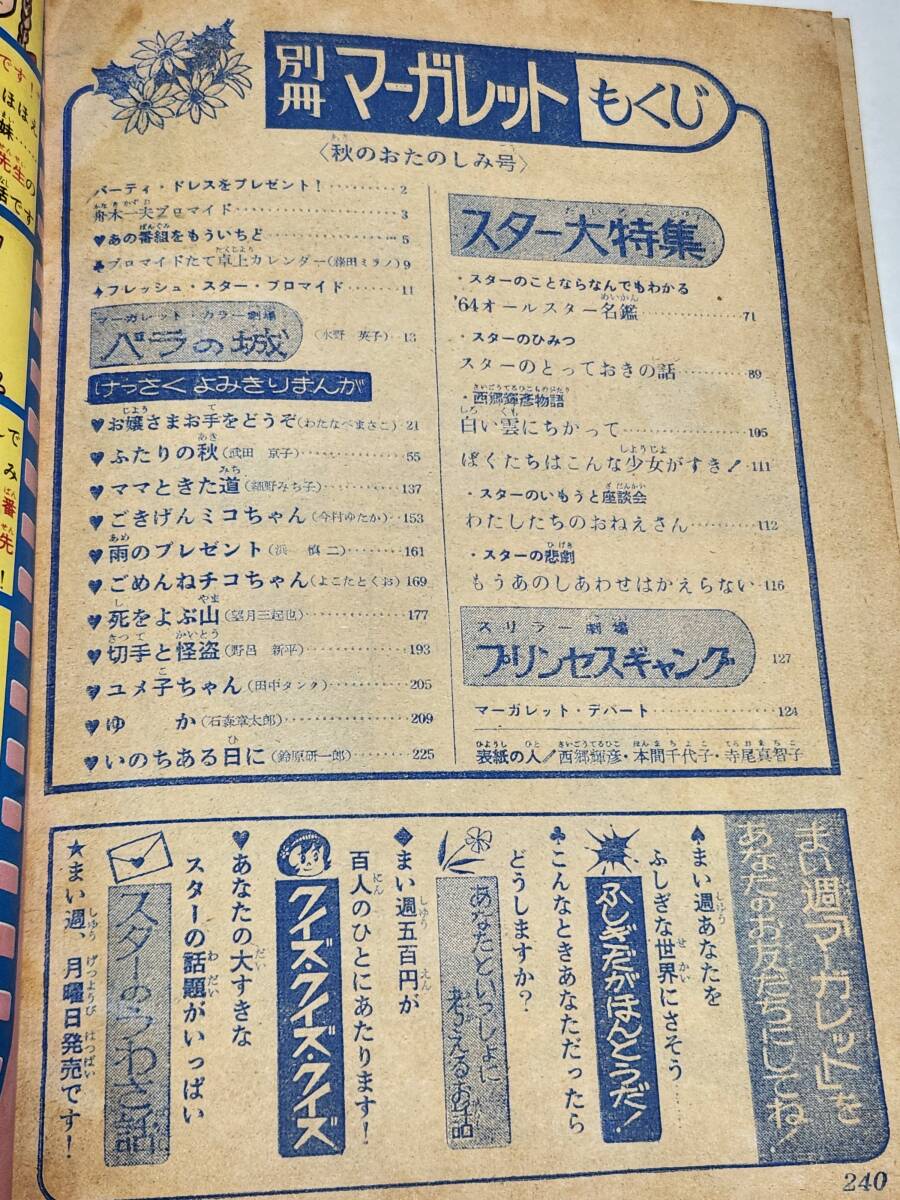 別冊 マーガレット もくじ
〈秋のおたのしみ号〉
パーティ・ドレスをプレゼント！………2
舟木一夫ブロマイド………3
♥あの番組をもういちど………5
♣ブロマイドたて卓上カレンダー(藤田ミラノ)9
♠フレッシュ・スター・ブロマイド………11
マーガレット・カラー劇場
バラの城
(水野 英子)…13
けっさくよみきりまんが
♥お嬢さまお手をどうぞ(わたなべまさこ)…21
♥ふたりの秋(武田 京子)………55
♥ママときた道(細野みち子)………137
♥ごきげんミコちゃん(今村ゆたか)……153
♥雨のプレゼント(浜 慎二)………161
♥ごめんねチコちゃん(よこたとくお)169
♥死をよぶ山(望月三起也)………177
♥切手と怪盗(野呂 新平)………193
♥ユメ子ちゃん(田中タンク)………205
♥ゆか(石森章太郎)………209
♥いのちある日に(鈴原研一郎)……225
スター大特集
・スターのことならなんでもわかる
'64オールスター名鑑………71
・スターのひみつ
スターのとっておきの話………89
・西郷輝彦物語
白い雲にちかって………105
ぼくたちはこんな少女がすき！…111
・スターのいもうと座談会
わたしたちのおねえさん………112
・スターの悲劇
もうあのしあわせはかえらない…116
スリラー劇場
プリンセスギャング
127
マーガレット・デパート………124
表紙の人／西郷輝彦・本間千代子・寺尾真智子
まい週「マーガレット」を
あなたのお友だちにしてね！
♠まい週あなたを
ふしぎな世界にさそう
ふしぎだがほんとうだ！
♣こんなときあなただったら
どうしますか？
あなたといっしょに
考えるお話
◆まい週五百円が
百人のひとにあたります！
クイズ・クイズ・クイズ
♥あなたの大すきな
スターの話題がいっぱい
スターのうわさ話
★まい週、月曜日発売です！
240